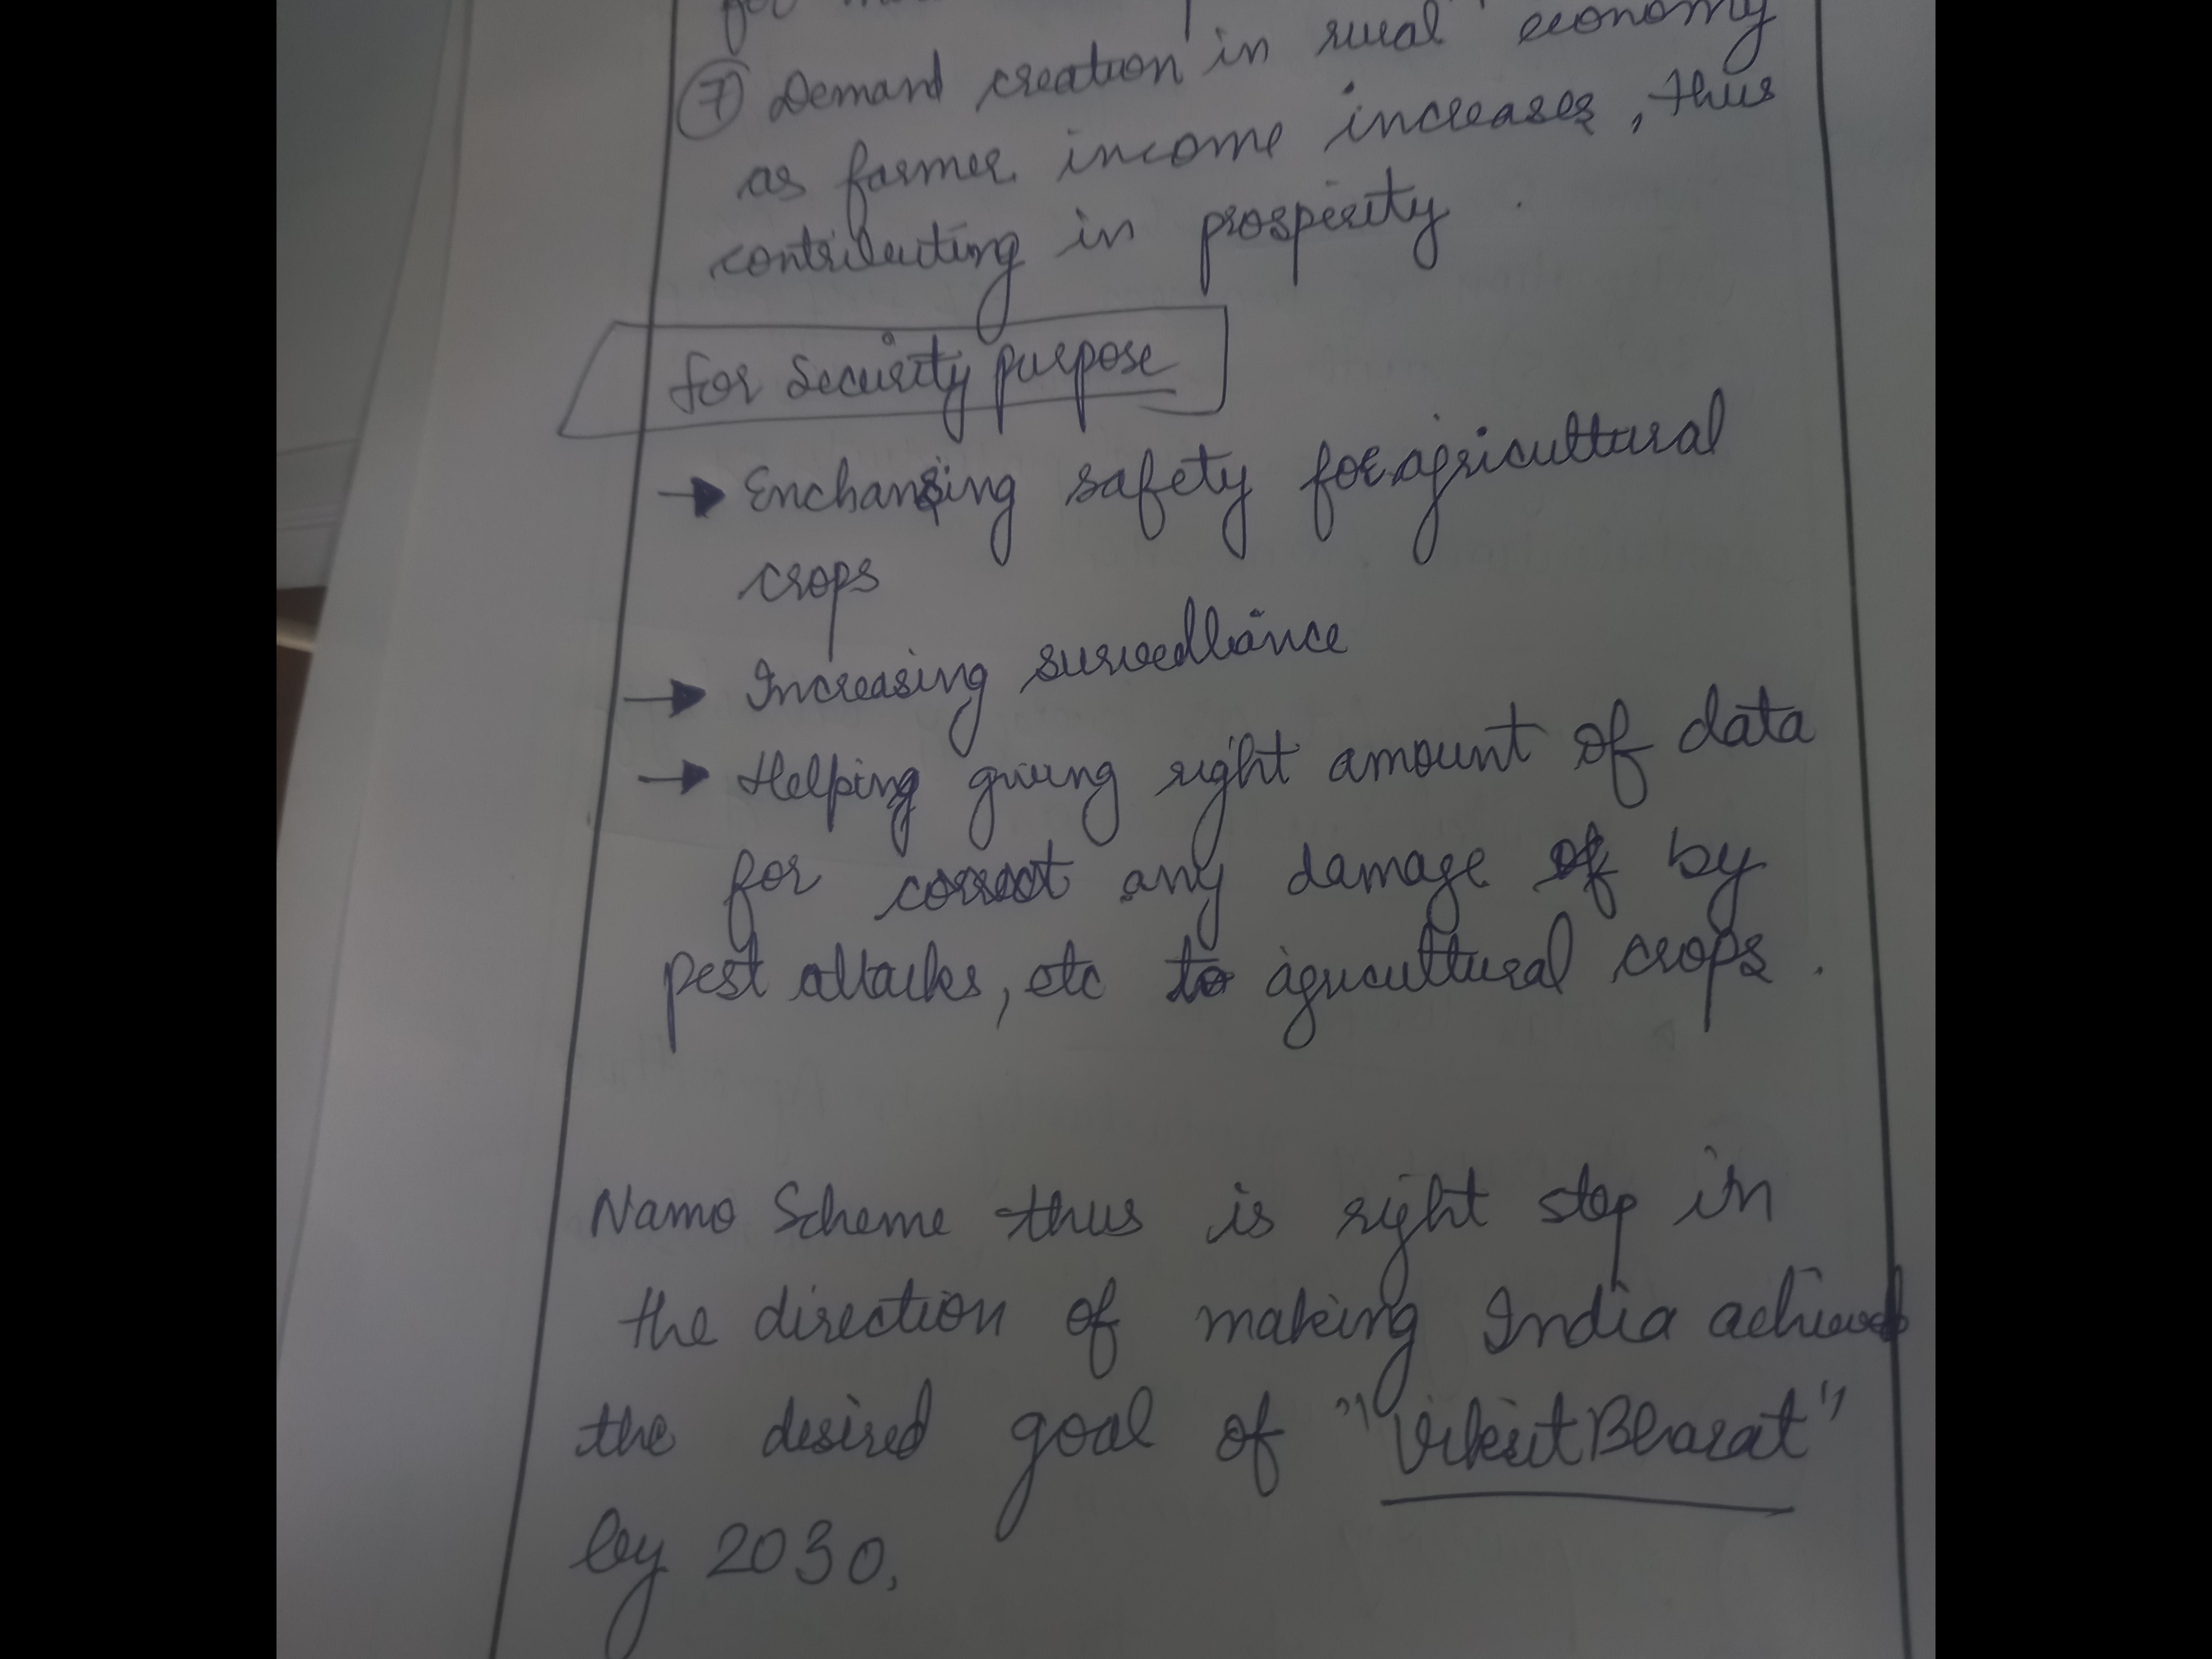 for
⑦ Demand creation in rural economy
as farmer income increases, thus
contributing in prosperity.
for security purpose
→ Enchancing safety for agricultural
crops
→ Increasing surveillance
→ Helping giving right amount of data
for correct any damage of by
pest attacks, etc to agricultural crops.
Namo Scheme thus is right step in
the direction of making India achieve
the desired goal of "Viksit Bharat"
by 2030.